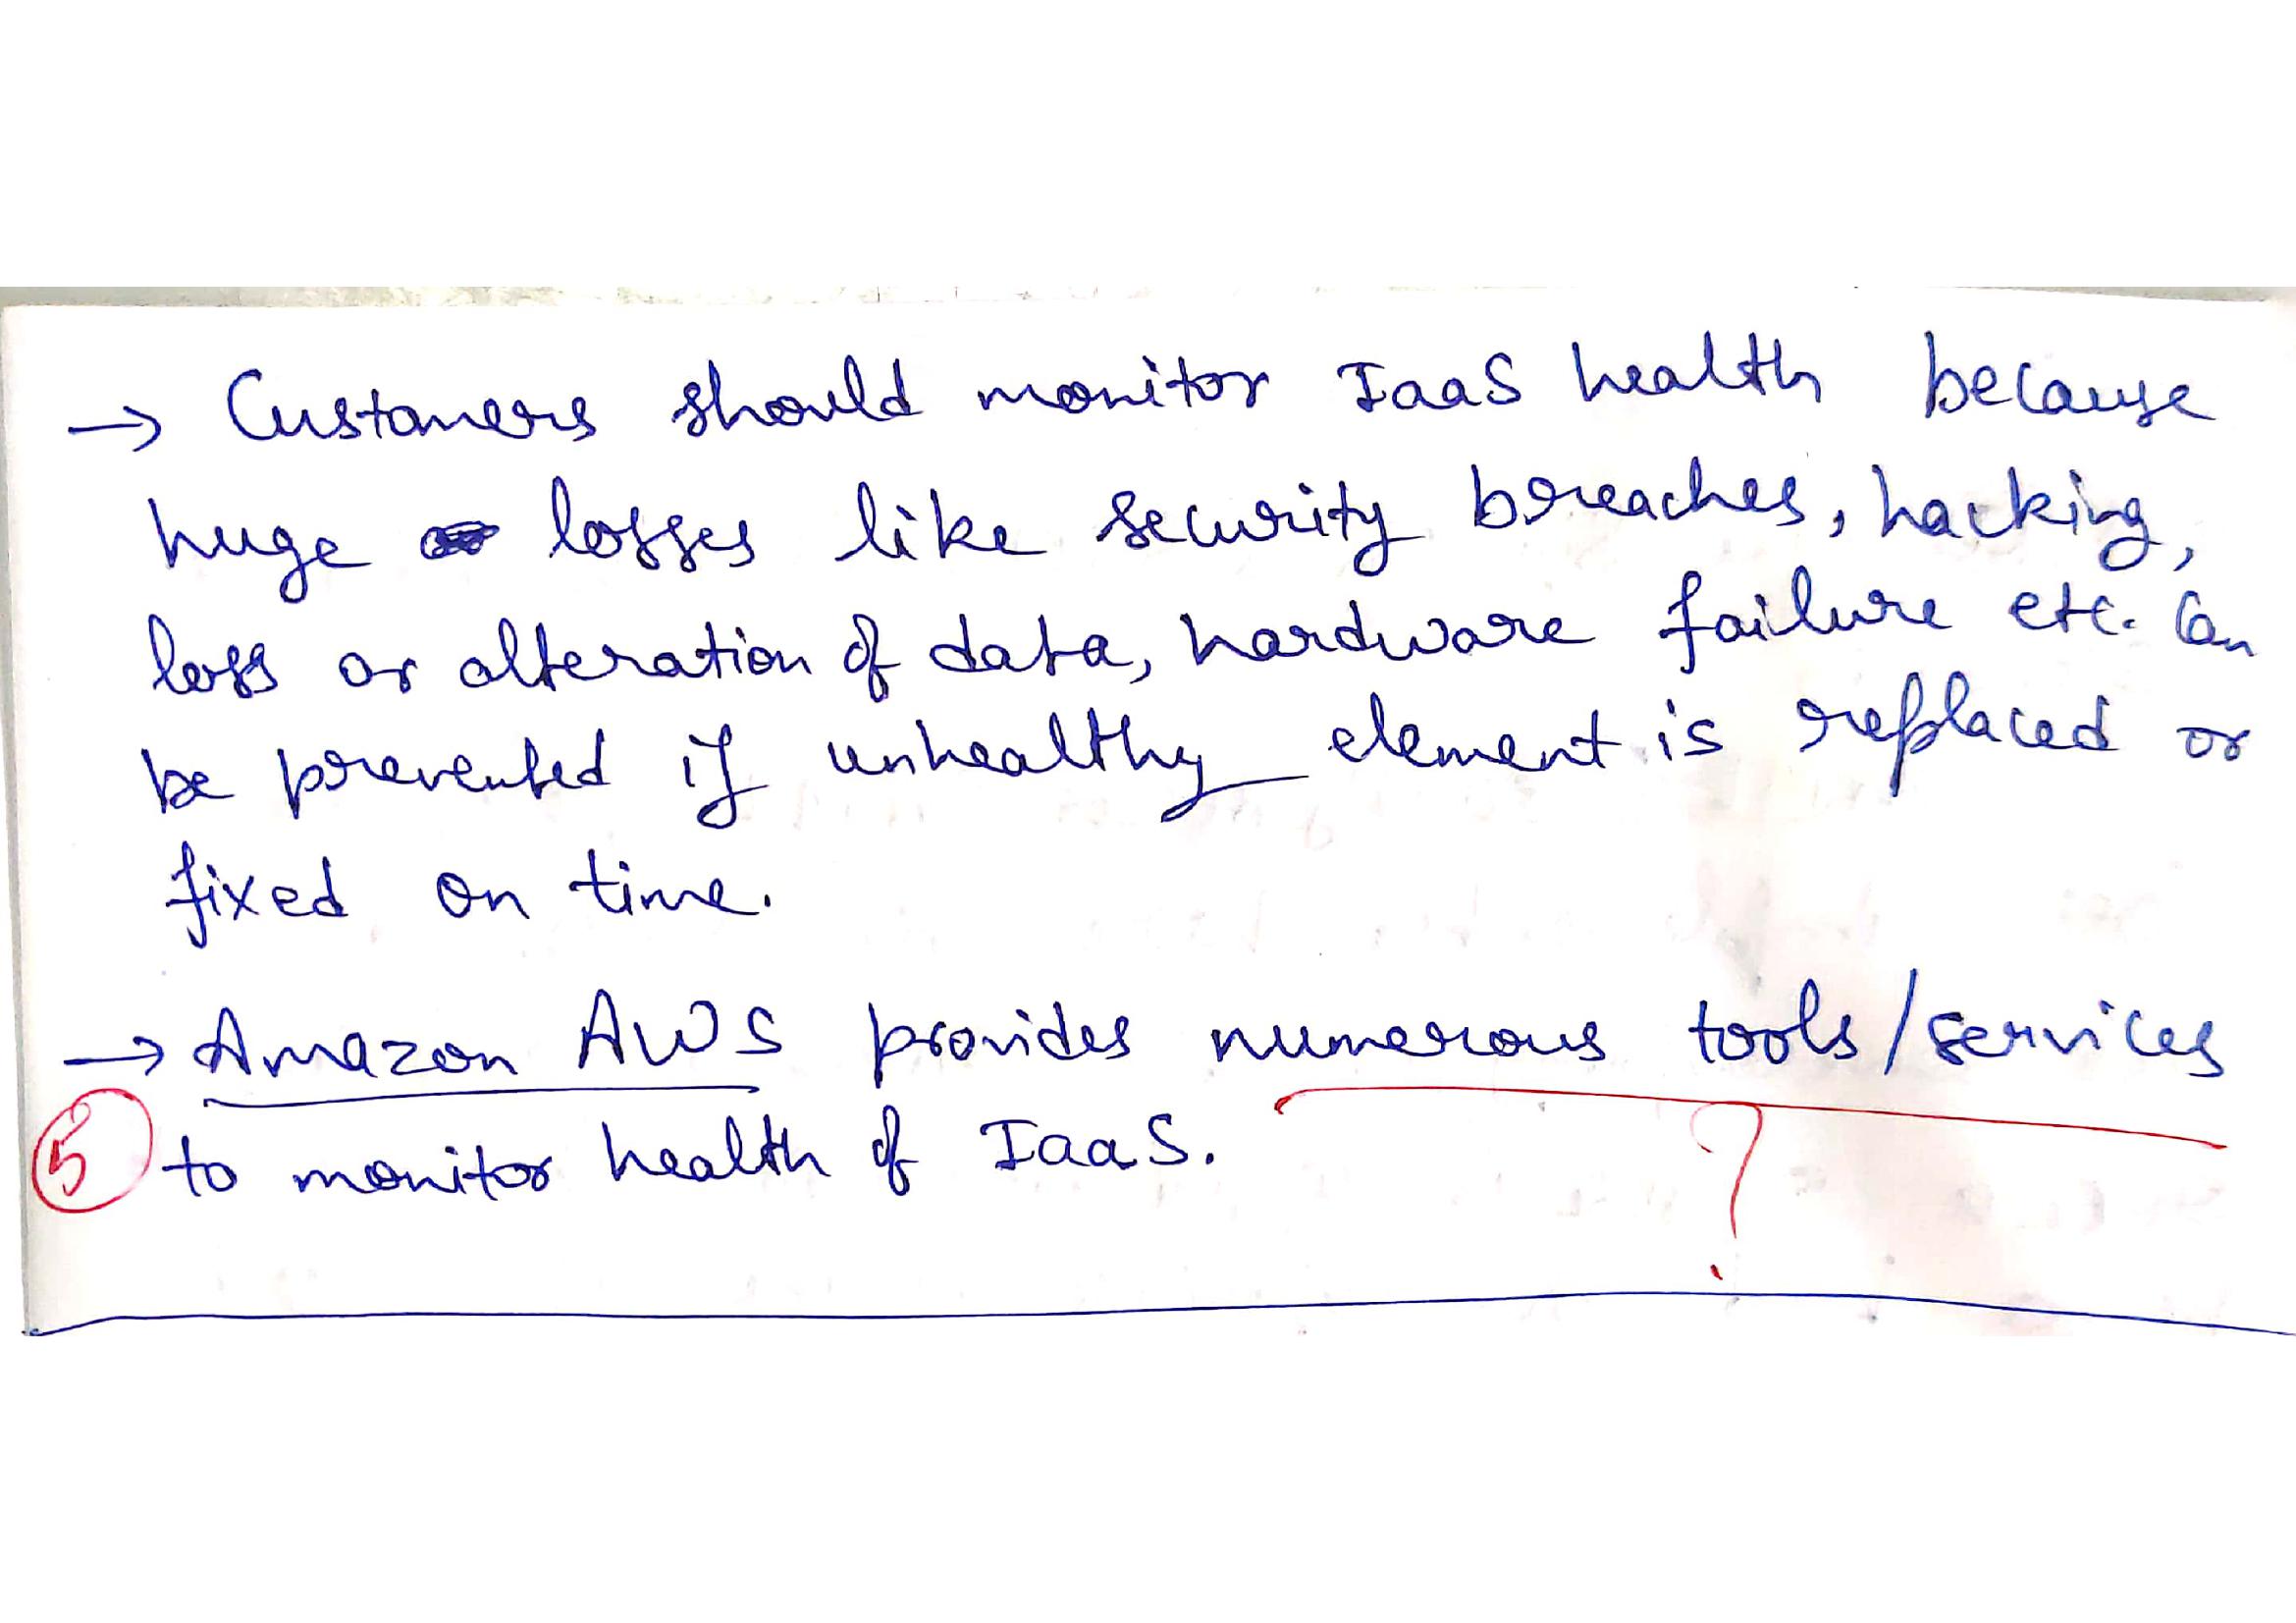 → Customers should monitor IaaS health because
huge losses like security breaches, hacking,
loss or alteration of data, hardware failure etc. Can
be prevented if unhealthy element is replaced or
fixed on time.
→ Amazon AWS provides numerous tools/services
5 to monitor health of IaaS. ?